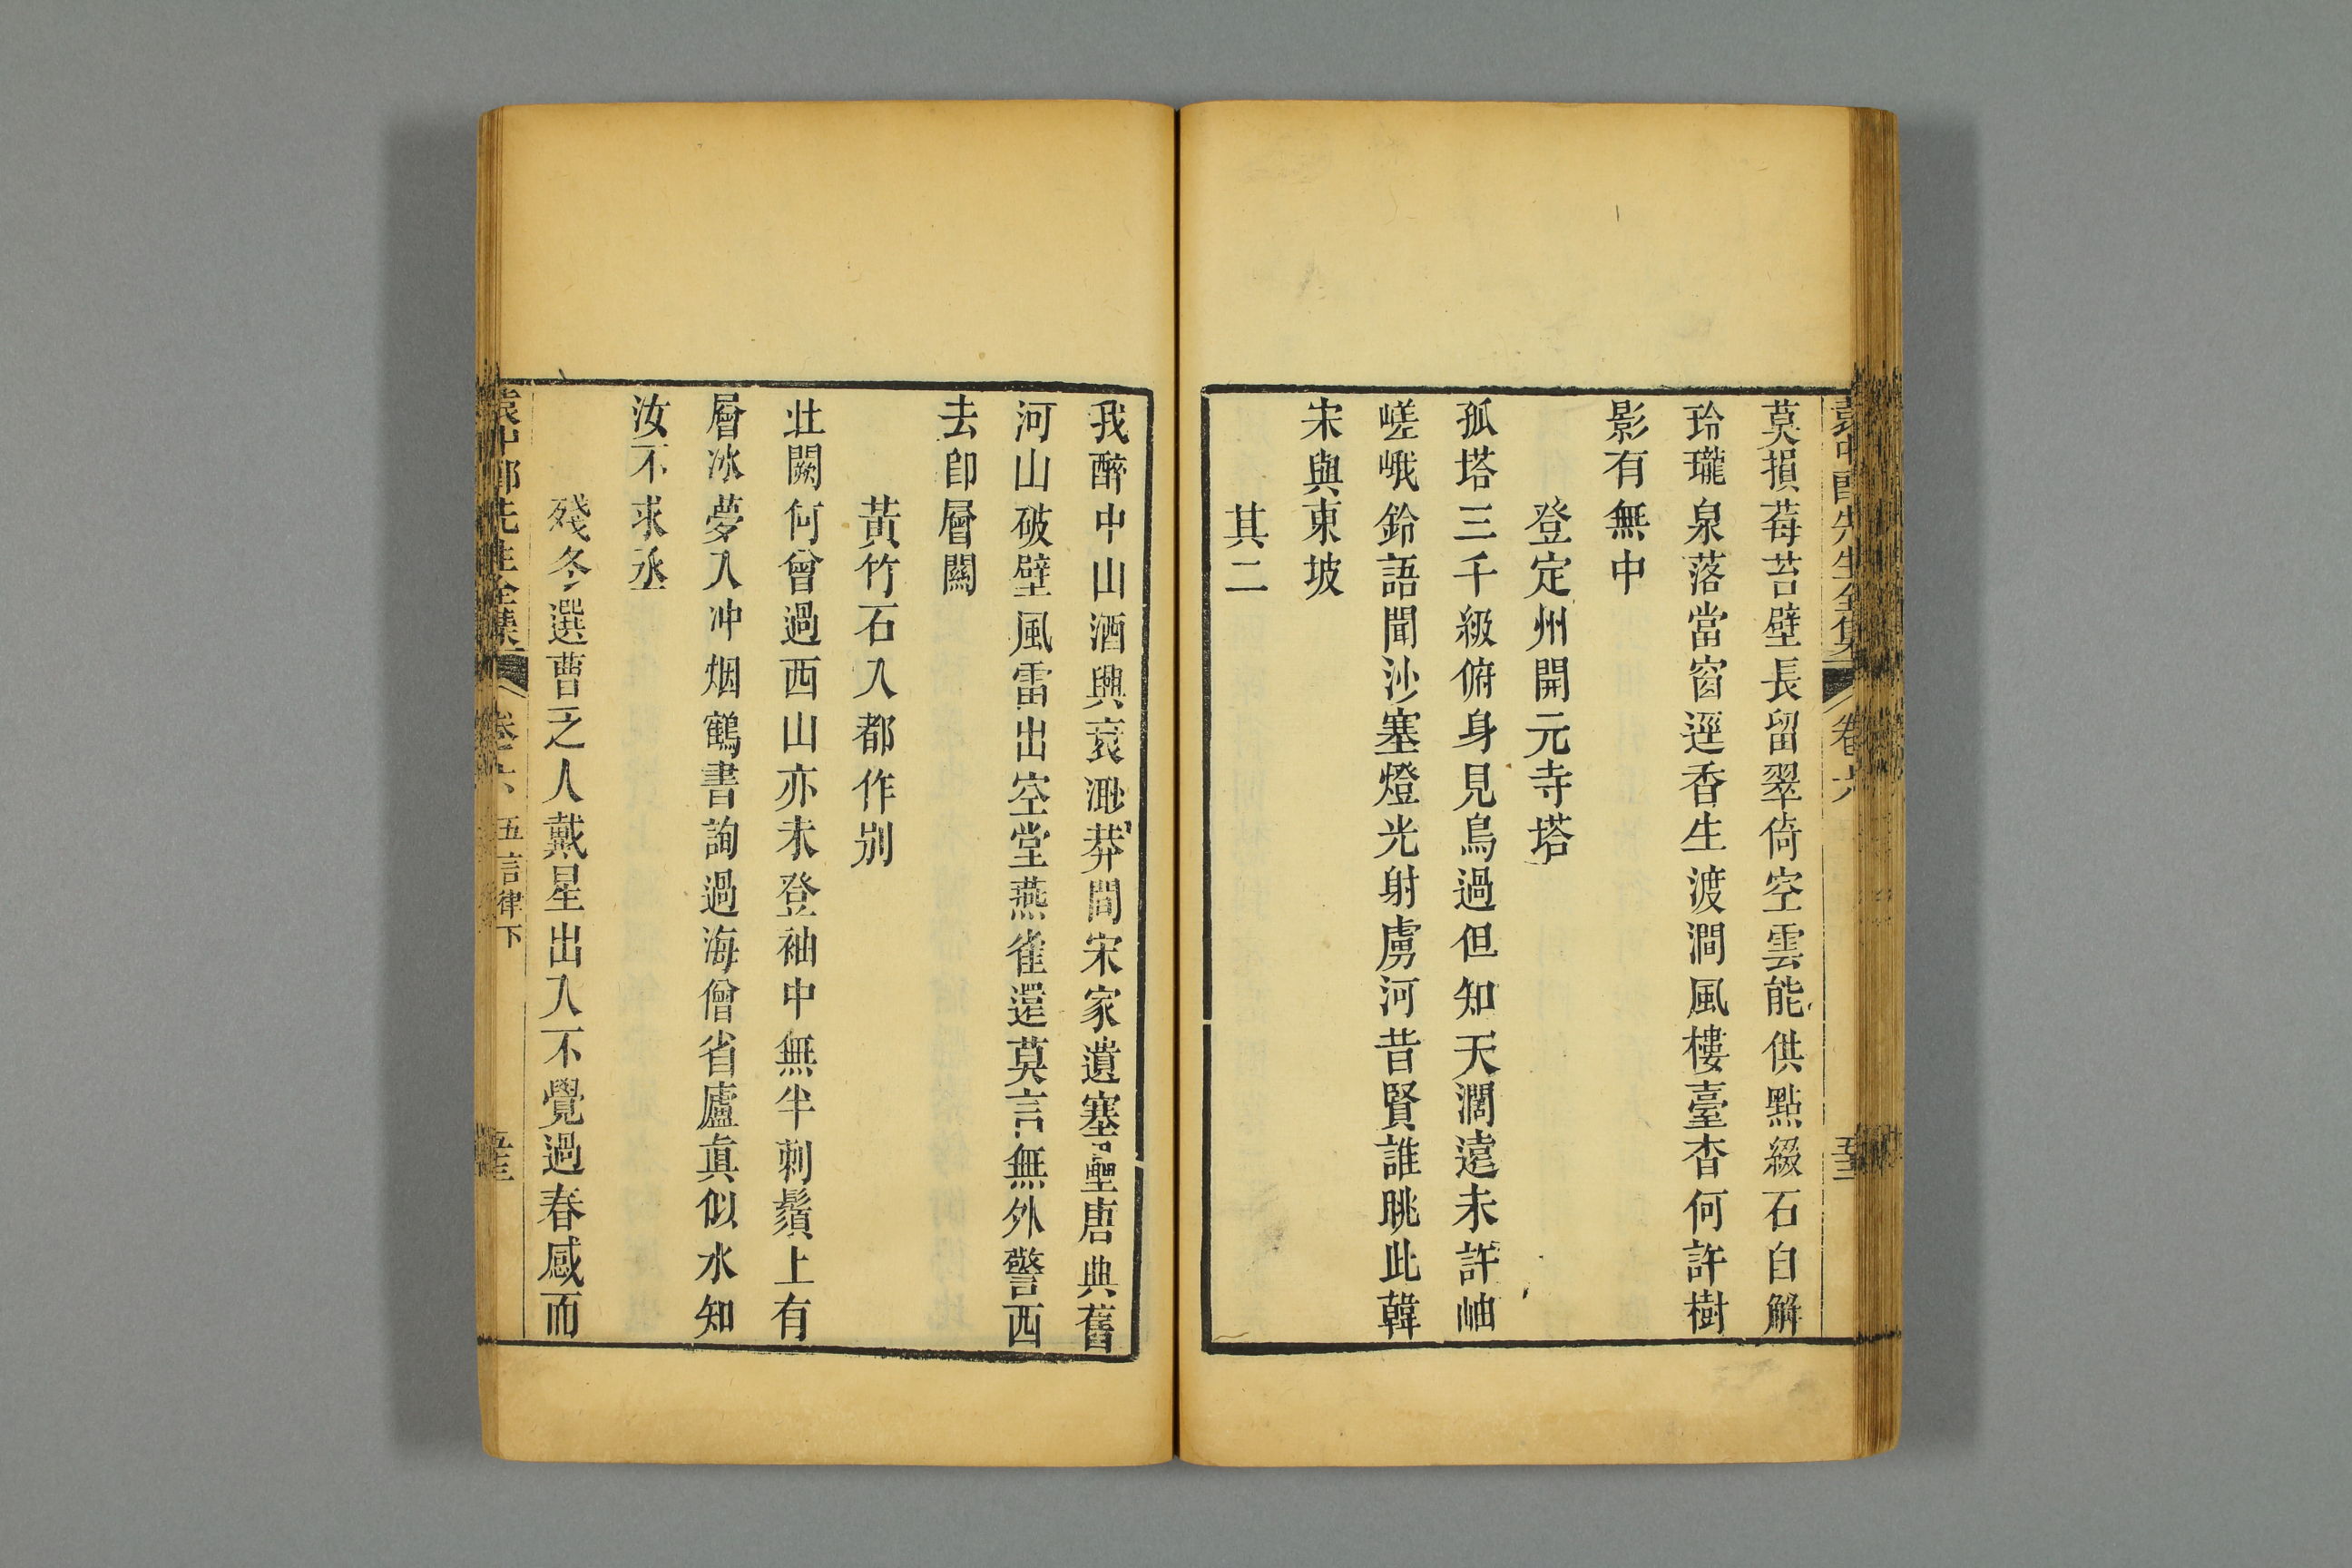 袁中郎先生全集 卷六
莫損莓苔壁長留翠倚空雲能供點綴石自解
玲瓏泉落當窗逕香生渡澗風樓臺杳何許樹
影有無中
登定州開元寺塔
孤塔三千級俯身見鳥過但知天濶遠未許岫
嵯峨鈴語聞沙塞燈光射虜河昔賢誰眺此韓
宋與東坡
其二
我醉中山酒興衰漭莽間宋家遺塞壘唐典舊
河山破壁風雷出空堂燕雀還莫言無外警西
去卽層關
黃竹石入都作別
壯闕何曾過西山亦未登袖中無半刺鬚上有
層冰夢入冲烟鶴書詢過海僧省廬眞似水知
汝不求丞
殘冬選曹乏人戴星出入不覺過春感而
袁中郎先生全集 卷六 五言律下